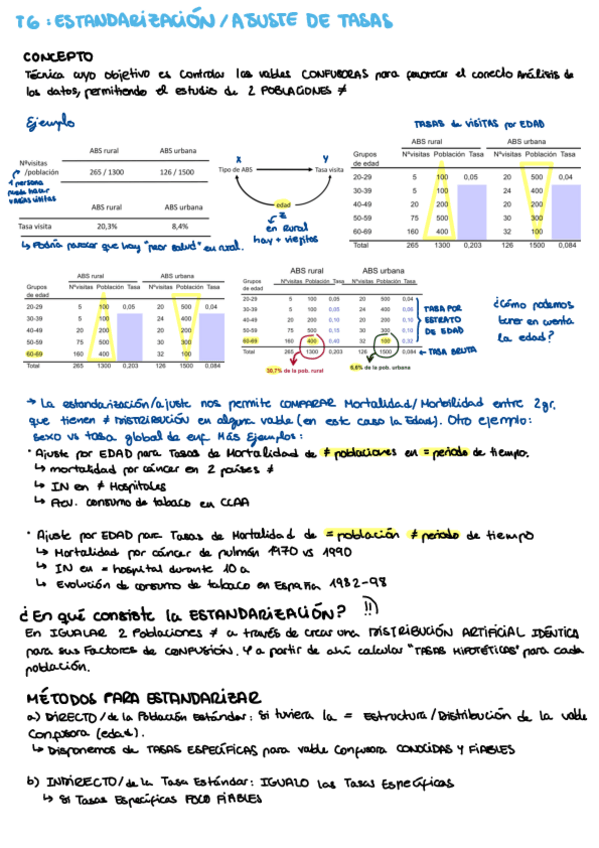 T6: ESTANDARIZACIÓN / AJUSTE DE TASAS
CONCEPTO
Técnica cuyo objetivo es controlar las vables CONFUSORAS para favorecer el correcto Análisis de
los datos, permitiendo el estudio de 2 POBLACIONES ≠
Ejemplo
ABS rural ABS urbana
Nºvisitas /población 265 / 1300 126 / 1500
1 persona puede hacer varias visitas
ABS rural ABS urbana
Tasa visita 20,3% 8,4%
↳ Podría parecer que hay "peor salud" en rural.
X Y
Tipo de ABS Tasa visita
edad
Z
en Rural
hay + viejitos
TASAS de VISITAS por EDAD
ABS rural ABS urbana
Grupos de edad Nºvisitas Población Tasa Nºvisitas Población Tasa
20-29 5 100 0,05 20 500 0,04
30-39 5 100 24 400
40-49 20 200 20 200
50-59 75 500 30 300
60-69 160 400 32 100
Total 265 1300 0,203 126 1500 0,084
ABS rural ABS urbana
Grupos de edad Nºvisitas Población Tasa Nºvisitas Población Tasa
20-29 5 100 0,05 20 500 0,04
30-39 5 100 24 400
40-49 20 200 20 200
50-59 75 500 30 300
60-69 160 400 32 100
Total 265 1300 0,203 126 1500 0,084
ABS rural ABS urbana
Grupos de edad Nºvisitas Población Tasa Nºvisitas Población Tasa
20-29 5 100 0,05 20 500 0,04
30-39 5 100 0,05 24 400 0,06
40-49 20 200 0,10 20 200 0,10
50-59 75 500 0,15 30 300 0,10
60-69 160 400 0,40 32 100 0,32
Total 265 1300 0,203 126 1500 0,084
30,7% de la pob. rural 6,6% de la pob. urbana
TASA POR
ESTRATO
DE EDAD
← TASA BRUTA
¿Cómo podemos
tener en cuenta
la edad?
→ La estandarización/ajuste nos permite COMPARAR Mortalidad/Morbilidad entre 2 gr.
que tienen ≠ DISTRIBUCIÓN en alguna vable (en este caso la Edad). Otro ejemplo:
sexo vs tasa global de enf. Más Ejemplos:
· Ajuste por EDAD para Tasas de Mortalidad de ≠ poblaciones en = periodo de tiempo.
↳ mortalidad por cáncer en 2 países ≠
↳ IN en ≠ Hospitales
↳ consumo de tabaco en CCAA
· Ajuste por EDAD para Tasas de Mortalidad de = población ≠ periodo de tiempo
↳ Mortalidad por cáncer de pulmón 1970 vs 1990
↳ IN en = hospital durante 10 a
↳ Evolución de consumo de tabaco en España 1982-98
¿En qué consiste la ESTANDARIZACIÓN? !!)
En IGUALAR 2 Poblaciones ≠ a través de crear una DISTRIBUCIÓN ARTIFICIAL IDÉNTICA
para sus Factores de CONFUSIÓN. Y a partir de ahí calcular "TASAS HIPOTÉTICAS" para cada
población.
MÉTODOS PARA ESTANDARIZAR
a) DIRECTO/de la Población Estándar: Si tuviera la = Estructura/Distribución de la vable
Confusora (edad).
↳ Disponemos de TASAS ESPECÍFICAS para vable Confusora CONOCIDAS Y FIABLES
b) INDIRECTO/de la Tasa Estándar: IGUALO las Tasas Específicas
↳ Si Tasas Específicas POCO FIABLES